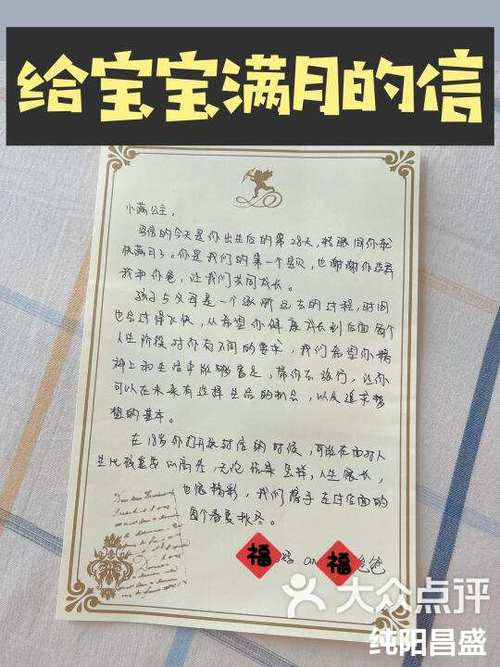 给宝宝满月的信
小满公主,
写信的今天是你出生后的第28天,转眼间你就
快满月了。你是我们的第一个宝贝,也谢谢你选择
我和你爸,让我们共同成长。
孩子与父母是一个逐渐远去的过程,时间
也会过得飞快,从希望你健康成长到后面每个
人生阶段对你有不同的要求,我们希望你精
神上和生活中能够富足,带你去旅行,让你
可以在未来有选择生活的机会,以及追求梦
想的基本。
在18岁你打开这封信的时候,可能在面对人
生比较重要的高考,无论结果怎样,人生很长,
也很精彩,我们携手走过后面的
每个春夏秋冬。
福 妈 and 福 爸爸
大众点评
纯阳昌盛